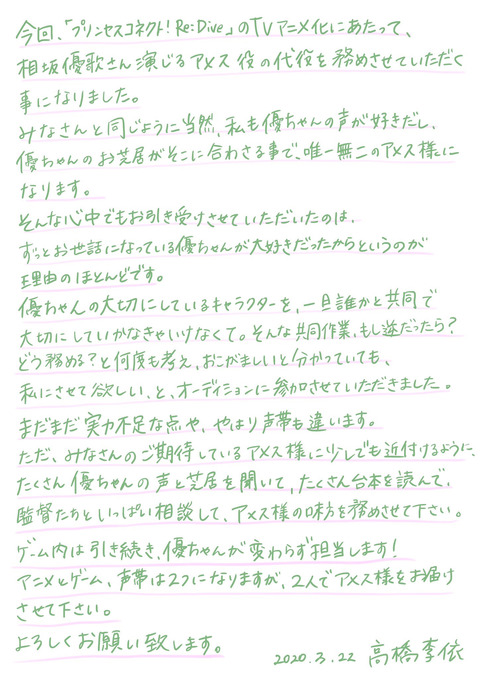 今回、「プリンセスコネクト！Re:Dive」のTVアニメ化にあたって、
相坂優歌さん演じるアメス役の代役を務めさせていただく
事になりました。
みなさんと同じように当然、私も優ちゃんの声が好きだし、
優ちゃんのお芝居がそこに合わさる事で、唯一無二のアメス様に
なります。
そんな心中でもお引き受けさせていただいたのは、
ずっとお世話になっている優ちゃんが大好きだったからというのが
理由のほとんどです。
優ちゃんの大切にしているキャラクターを、一旦誰かと共同で
大切にしていかなきゃいけなくて。そんな共同作業、もし逆だったら？
どう務める？と何度も考え、おこがましいと分かっていても、
私にさせて欲しい、と、オーディションに参加させていただきました。
まだまだ実力不足な点や、やはり声帯も違います。
ただ、みなさんのご期待しているアメス様に少しでも近付けるように、
たくさん優ちゃんの声と芝居を聞いて、たくさん台本を読んで、
監督たちといっぱい相談して、アメス様の味方を務めさせて下さい。
ゲーム内は引き続き、優ちゃんが変わらず担当します！
アニメとゲーム、声帯は2つになりますが、2人でアメス様をお届け
させて下さい。
よろしくお願い致します。
2020.3.22 高橋李依